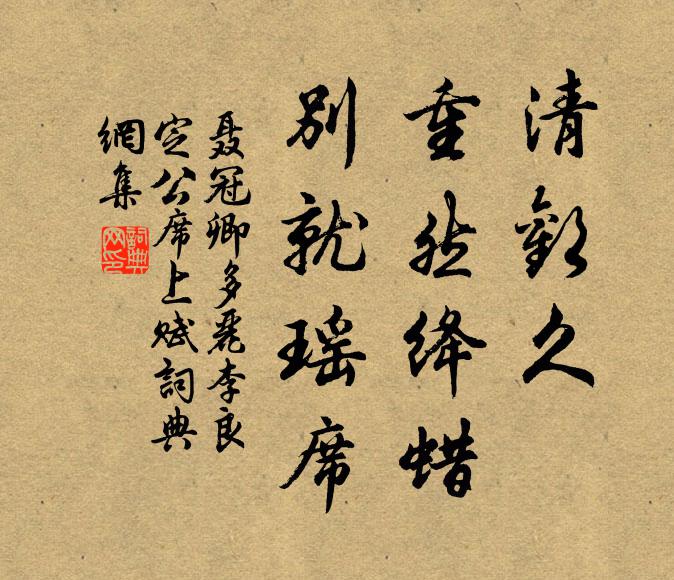 清歡久
重然絳蜡
別就瑶席
聂冠卿多麗李良
定公席上賦詞典
網集
詞典
网印